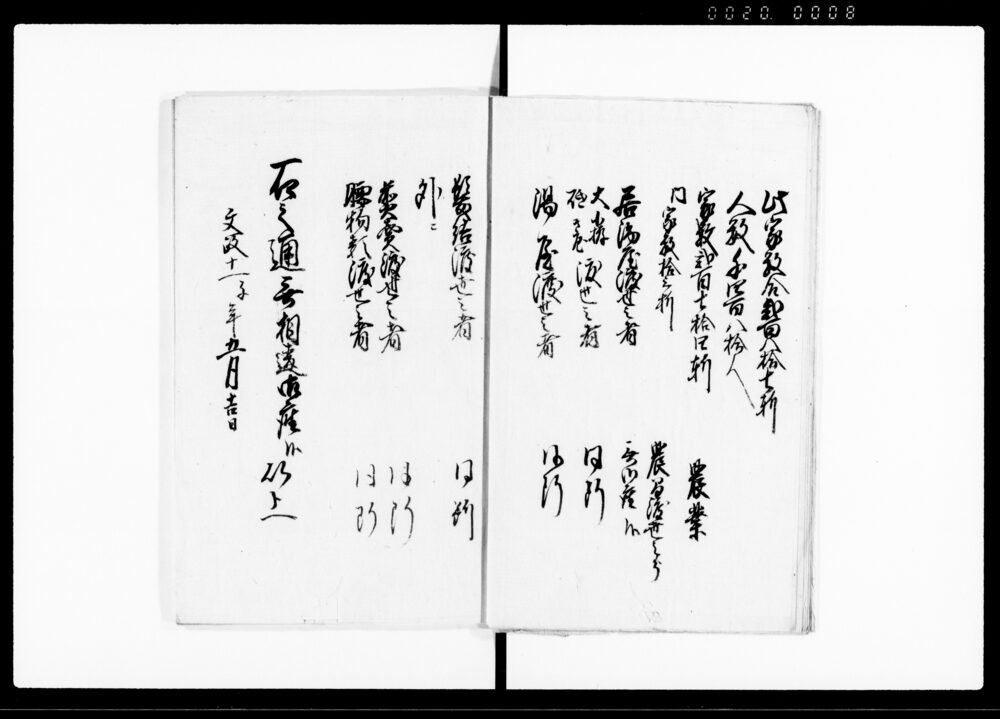 0020. 0008
此家数合弐百八拾七軒
人数千四百八拾人
家数弐百七拾四軒 農業
内 家数拾三軒 農業渡世之分
居酒屋渡世之者 無御座候
大工 渡世之者 同断
湯屋渡世之者 同断
髪結渡世之者 同断
外ニ
煮売渡世之者 同断
腰物類渡世之者 同断
右之通無相違御座候 以上
文政十一子年五月吉日